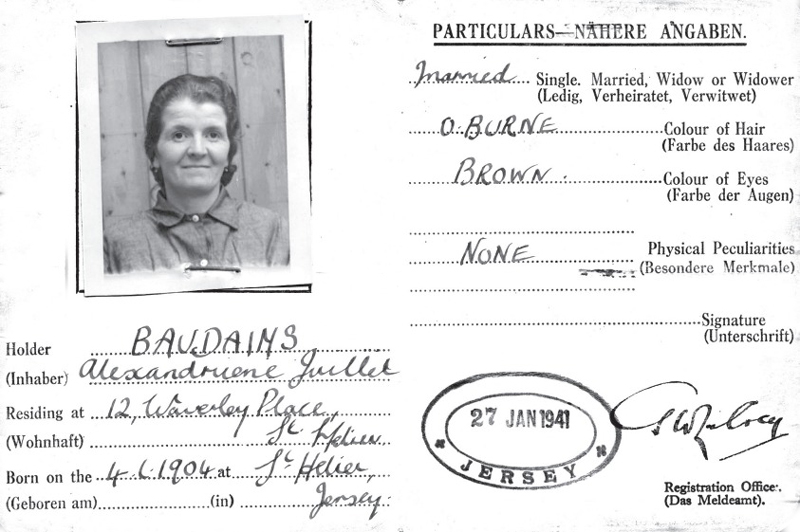 Holder BAUDAINS
(Inhaber) Alexandruene Juillet
Residing at 12, Waverley Place,
(Wohnhaft) St. Helier
Born on the 4. 1904 at St Helier,
(Geboren am) (in) Jersey.
PARTICULARS—NÄHERE ANGABEN.
Married Single. Married, Widow or Widower
(Ledig, Verheiratet, Verwitwet)
O. BURNE Colour of Hair
(Farbe des Haares)
BROWN. Colour of Eyes
(Farbe der Augen)
NONE Physical Peculiarities
(Besondere Merkmale)
Signature
(Unterschrift)
27 JAN 1941
JERSEY
Registration Office.
(Das Meldeamt).